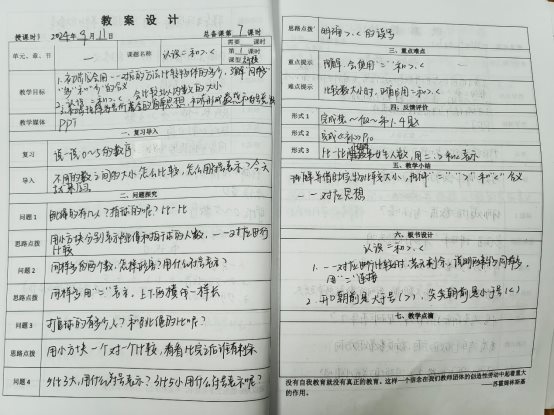 教案设计
授课时间 2024年9月11日 总备课第7课时
单元、章、节 一 课题名称 认识=和>、< 需要 课时
第1课时
课型 新授
教学目标 1.初步学会用一一对应的方法比较物体的多少,理解"同样多"
和的含义
2.认识=和>、<,会比较5以内数的大小
教学媒体 PPT
一、复习导入
复习 说一说0~5的数字
导入 不同的数之间的大小怎么比较,怎么用符号表示?今天
二、问题探究
问题1 比一比
思路点拨 用小方块分别表示和的人数,一一对应进行
比较
问题2 同样多的两个数,怎样用什么符号表示?
思路点拨 同样多用"="表示,上下两横一样长
问题3 打篮球的有多少人?和的比呢?
思路点拨 用小方块一个对一个比较,看看比完后谁有剩余
问题4 3比2大,用什么符号表示?3比5小用什么符号表示呢?
思路点拨 明确>、<的读写
三、重点难点
重点提示 理解、会使用"="和>、<
难点提示 比较数大小时,明确用=和>、<
四、反馈评价
形式1 完成练一做一第1.4题
形式2 完成《》P10
形式3 比一比男女生人数,用=、>和<表示
五、教学小结
比较大小,"="">"和"<"含义
一一对应思想
六、板书设计
认识=和>、<
1.一一对应进行比较时,若无剩余,说明两者同样多,
用"="连接
2.开口朝前是大于号(>),尖尖朝前是小于号(<)
七、教学点滴
没有自我教育就没有真正的教育。这样一个信念在我们教师团体的创造性劳动中起着重大
的作用。
——苏霍姆林斯基